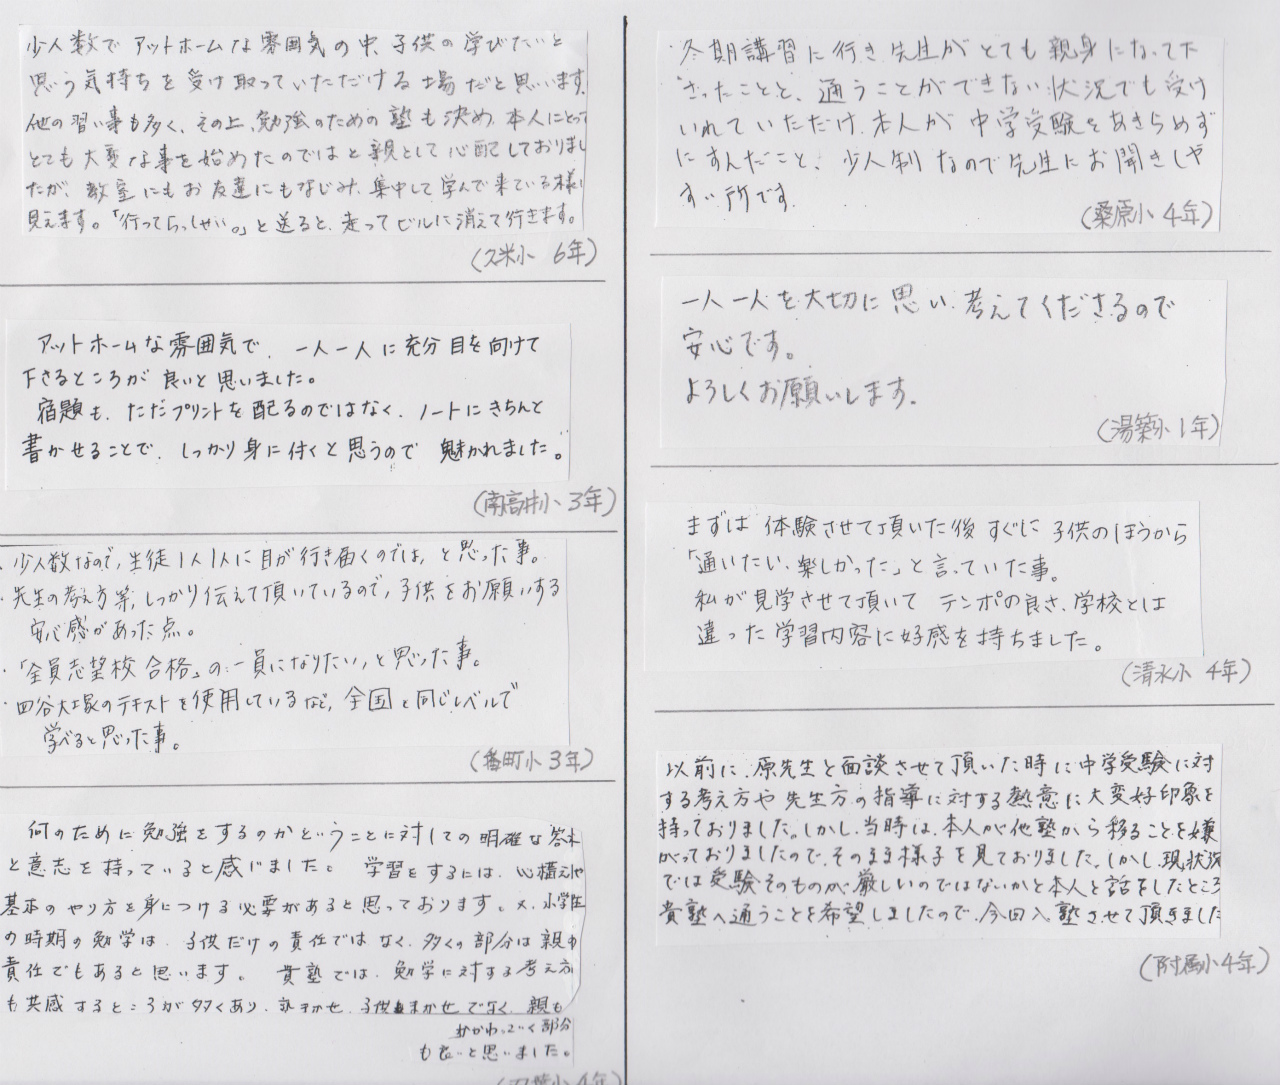 少人数でアットホームな雰囲気の中、子供の学びたいと
思う気持ちを受け取っていただける場だと思います。
他の習い事も多く、その上、勉強のための塾も決め、本人にとって
とても大変な事を始めたのではと親として心配しておりまし
たが、教室にもお友達にもなじみ、集中して学んで来ている様に
見えます。「行ってらっしゃい。」と送ると、走ってビルに消えて行きます。
(久米小 6年)
アットホームな雰囲気で、一人一人に充分目を向けて
下さるところが良いと思いました。
宿題も、ただプリントを配るのではなく、ノートにきちんと
書かせることで、しっかり身に付くと思うので 魅かれました。
(南高井小 3年)
・少人数なので、生徒1人1人に目が行き届くのでは、と思った事。
・先生の考え方等、しっかり伝えて頂いているので、子供をお願いする
安心感があった点。
・「全員志望校合格」の一員になりたい、と思った事。
・四谷大塚のテキストを使用しているなど、全国と同じレベルで
学べると思った事。
(番町小 3年)
何のために勉強をするのかということに対しての明確な答え
と意志を持っていると感じました。 学習をするには、心構えや
基本のやり方を身につける必要があると思っております。又、小学生
の時期の勉学は、子供だけの責任ではなく、多くの部分は親の
責任でもあると思います。 貴塾では、勉学に対する考え方
も共感するところが多くあり、 まかせ、子供まかせでなく、親も
かかわっていく部分
も良いと思いました。
小4年)
冬期講習に行き先生がとても親身になって下
さったことと、通うことができない状況でも受け
いれていただけ、本人が中学受験をあきらめず
にすんだこと、少人制なので先生にお聞きしや
すい所です。
(桑原小 4年)
一人一人を大切に思い、考えてくださるので
安心です。
よろしくお願いします。
(湯築小 1年)
まずは 体験させて頂いた後 すぐに 子供のほうから
「通いたい、楽しかった」と言っていた事。
私が見学させて頂いて テンポの良さ、学校とは
違った学習内容に好感を持ちました。
(清水小 4年)
以前に、原先生と面談させて頂いた時に中学受験に対
する考え方や先生方の指導に対する熱意に大変好印象を
持っておりました。しかし、当時は、本人が他塾から移ることを嫌
がっておりましたので、そのまま様子を見ておりました。しかし、現状況
では受験そのものが厳しいのではないかと本人と話をしたところ
貴塾へ通うことを希望しましたので、今回入塾させて頂きました
(附属小 4年)